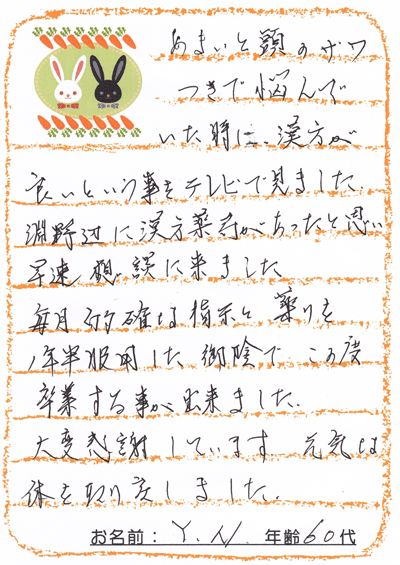 めまいと頭のザワ
つきで悩んで
いた時に、漢方が
良いという事をテレビで見ました。
淵野辺に漢方薬局があったと思い
早速相談に来ました
毎月的確な指示と薬りを
1年半服用した御陰でこの度
卒業する事が出来ました。
大変感謝しています 元気な
体を取り戻しました。
お名前：Y.N. 年齢60代